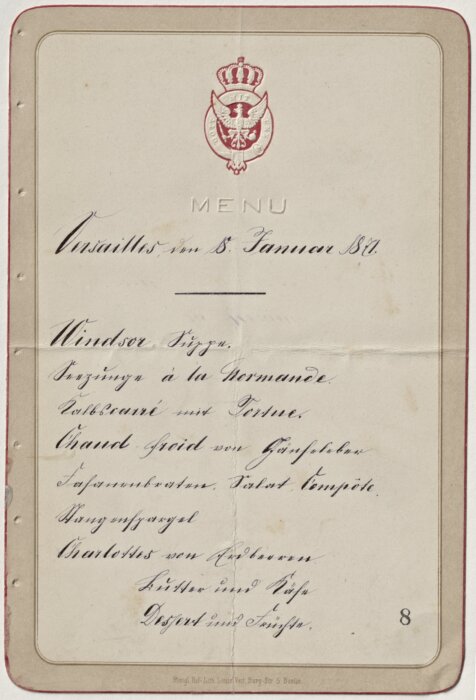 MENU
Versailles, den 18. Januar 1871.
Windsor Suppe.
Seezunge à la Normande.
Kalbscarré mit Tortue.
Chaud-froid von Gänseleber
Fasanenbraten. Salat. Compôte.
Stangenspargel
Charlottes von Erdbeeren
Butter und Käse
Dessert und Früchte.
8